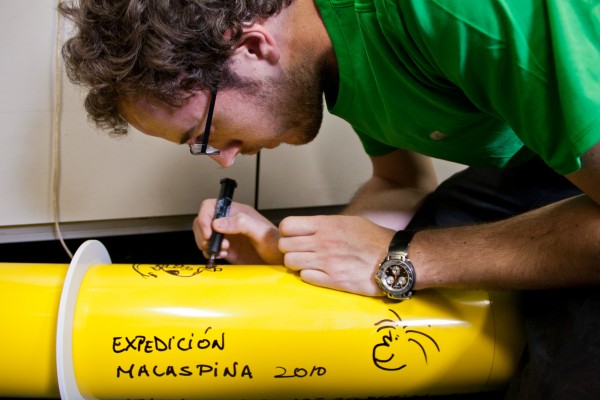 EXPEDICIÓN
MALASPINA 2010